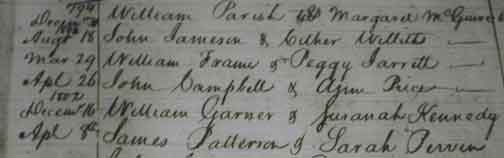 1794
Decem William Parish & Margaret McGuire
Augt 18 John Jameson & Esther Willett
Mar 29 William Frame & Peggy Jarrett
Apl 26 John Campbell & Ann Price
1802
Decem 16 William Garner & Susanah Kennedy
Apl 8th James Patterson & Sarah Pervin